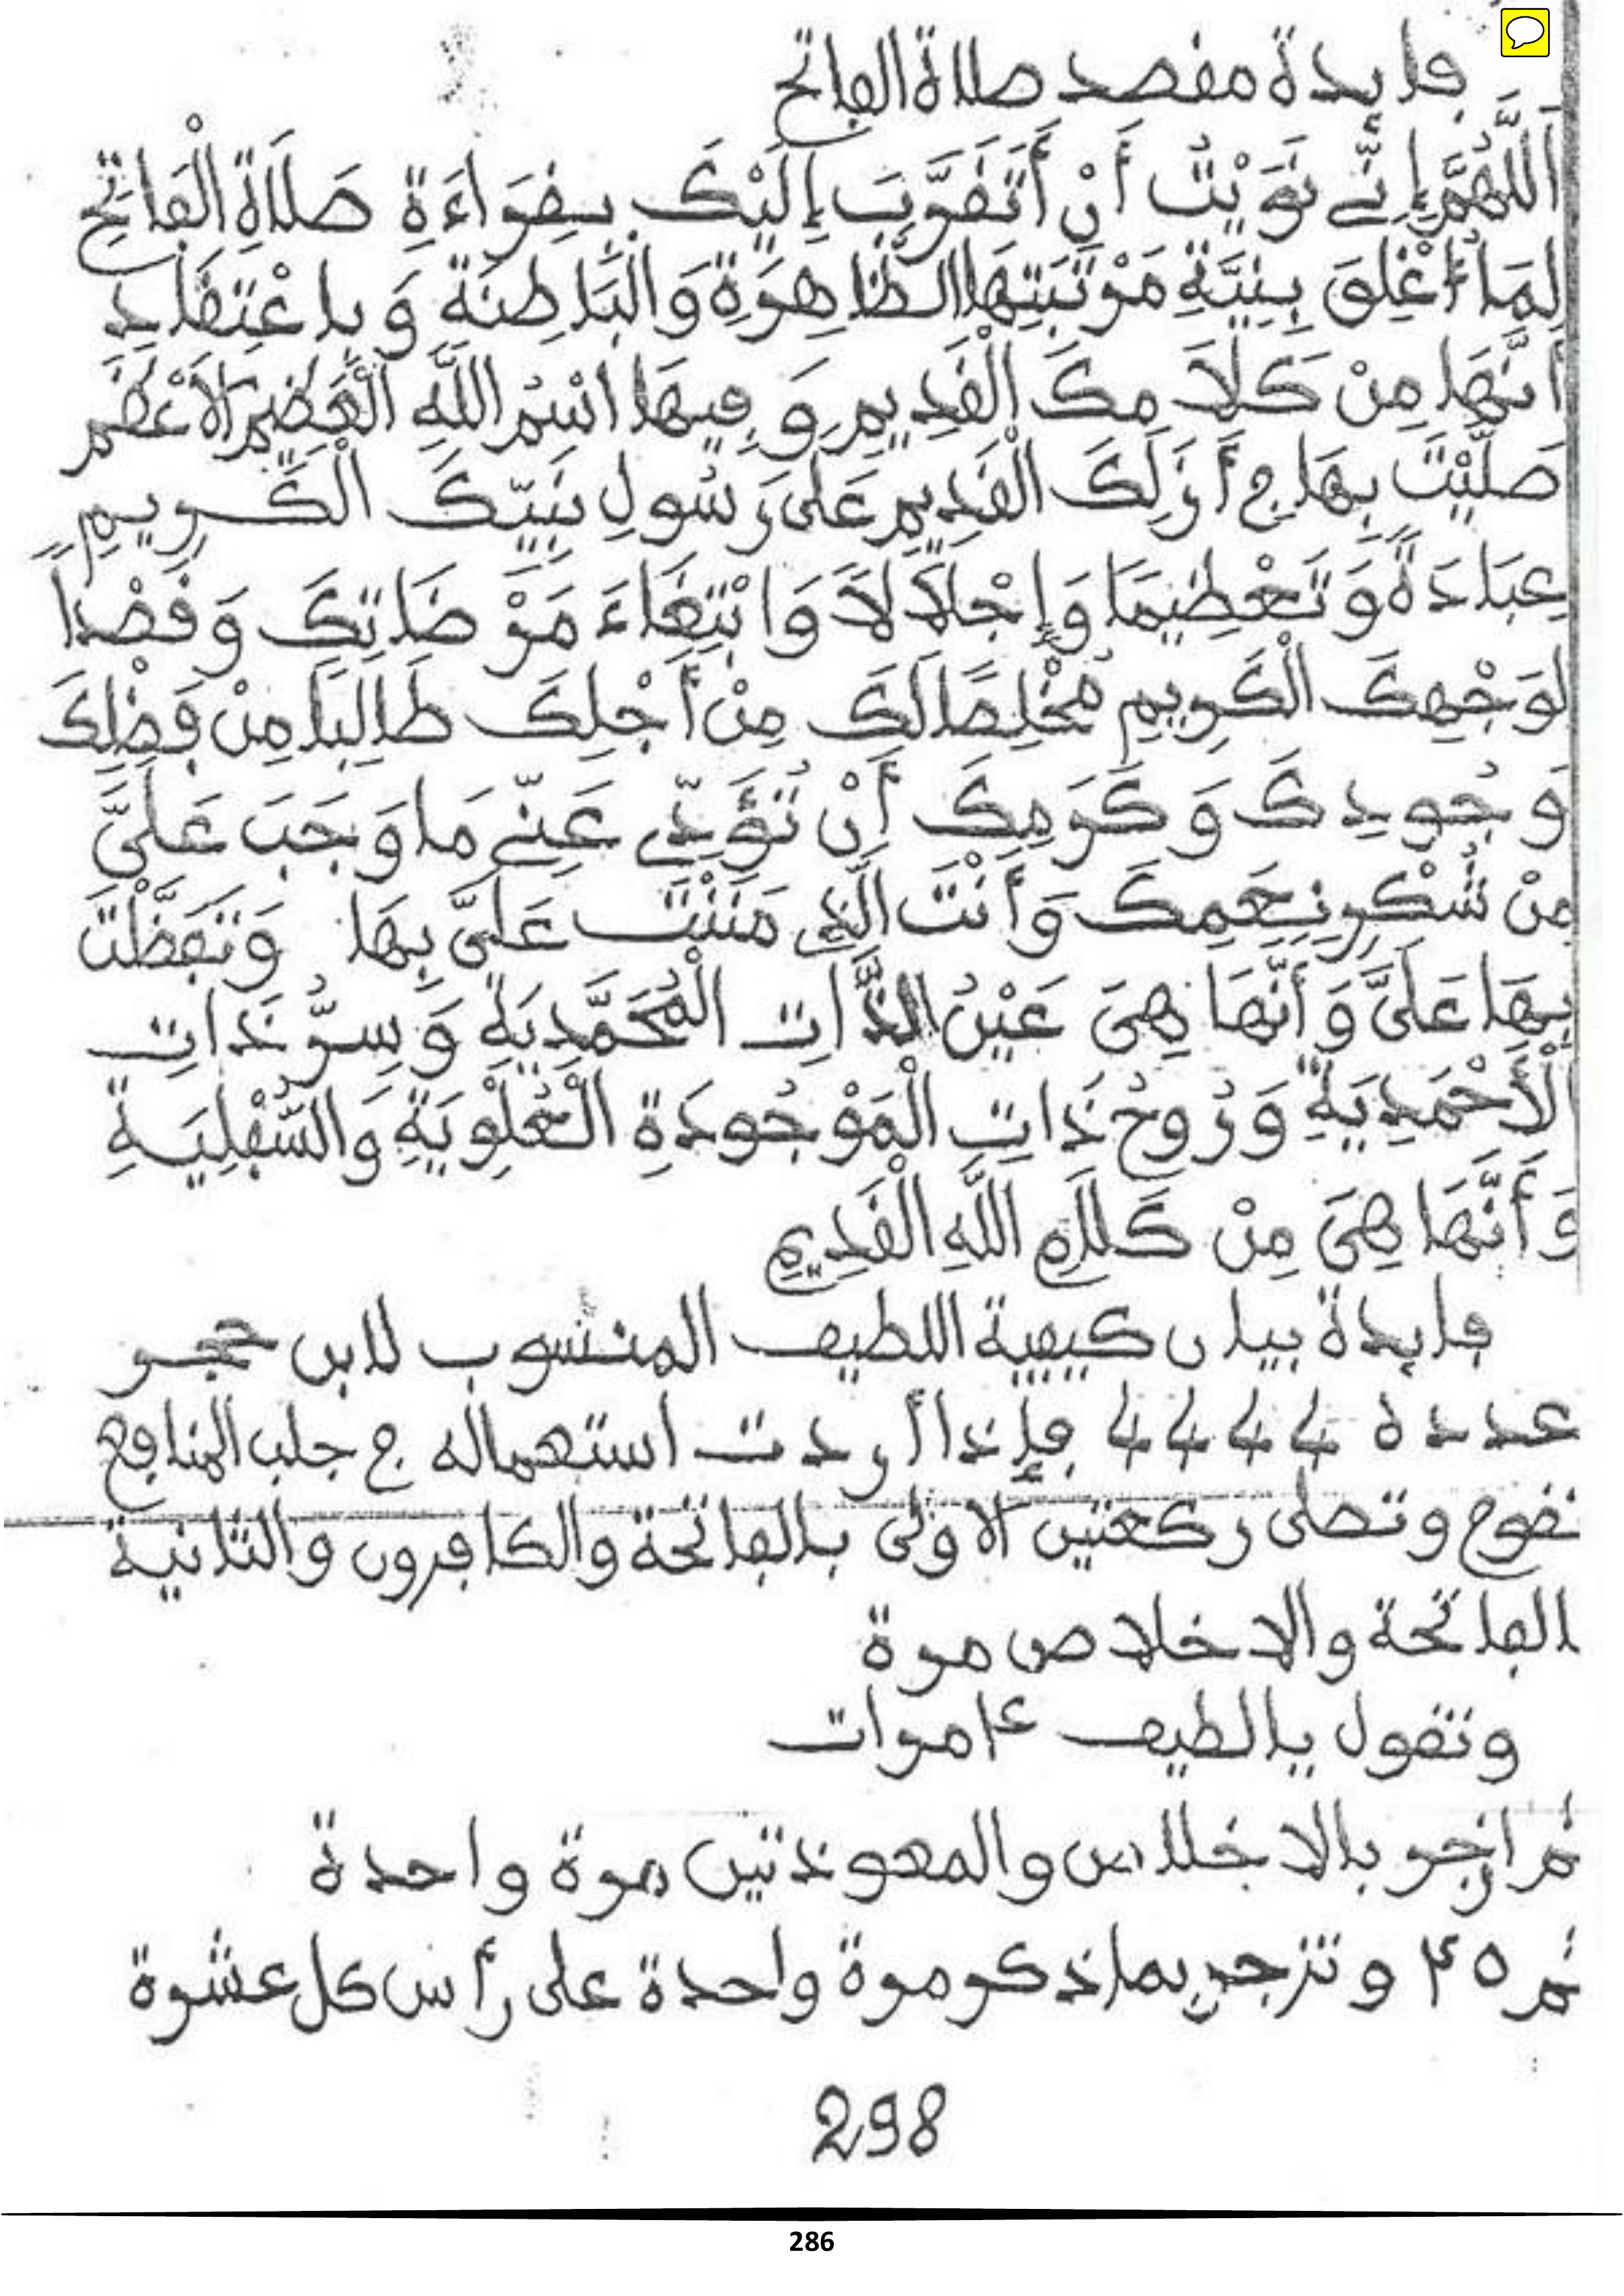 فايدة مقصد صلاة الفاتح
اَللَّهُمَّ إِنِّي نَوَيْتُ أَنْ أَتَقَرَّبَ إِلَيْكَ بِقِرَاءَةِ صَلَاةِ الْفَاتِحِ
لِمَا أُغْلِقَ بِنِيَّةِ مَرْتَبَتِهَا الظَّاهِرَةِ وَالْبَاطِنَةِ وَبِاعْتِقَادِ
أَنَّهَا مِنْ كَلَامِكَ الْقَدِيمِ وَفِيهَا اسْمُ اللَّهِ الْعَظِيمِ الْأَعْظَمِ
صَلَّيْتَ بِهَا فِي أَزَلِكَ الْقَدِيمِ عَلَى رَسُولِ نَبِيِّكَ الْكَرِيمِ
عِبَادَةً وَتَعْظِيمًا وَإِجْلَالًا وَابْتِغَاءَ مَرْضَاتِكَ وَقَصْداً
لِوَجْهِكَ الْكَرِيمِ مُخْلِصًا لَكَ مِنْ أَجْلِكَ طَالِبًا مِنْ فَضْلِكَ
وَجُودِكَ وَكَرَمِكَ أَنْ تُؤَدِّي عَنِّي مَا وَجَبَ عَلَيَّ
مِنْ شُكْرِ نِعَمِكَ وَأَنْتَ الَّذِي مَنَنْتَ عَلَيَّ بِهَا وَتَفَظَّلْتَ
بِهَا عَلَيَّ وَأَنَّهَا هِيَ عَيْنُ الذَّاتِ الْمُحَمَّدِيَةِ وَسِرُّ ذَاتِ
الْأَحْمَدِيَةِ وَرُوحُ ذَاتِ الْمَوْجُودَةِ الْعُلْوِيَةِ وَالسُّفْلِيَةِ
وَأَنَّهَا هِيَ مِنْ كَلَامِ اللَّهِ الْقَدِيمِ
فايدة بيان كيفية اللطيف المنسوب لابن حجر
عدده 4444 فإذا أردت استعماله في جلب المنافع
تقوم وتصلى ركعتين الاولى بالفاتحة والكافرون والثانية
الفاتحة والاخلاص مرة
وتقول يالطيف مرات
ثم ازجر بالاخلاص والمعوذتين مرة واحدة
ثم وتزجر بماذكر مرة واحدة على رأس كل عشرة
298
286